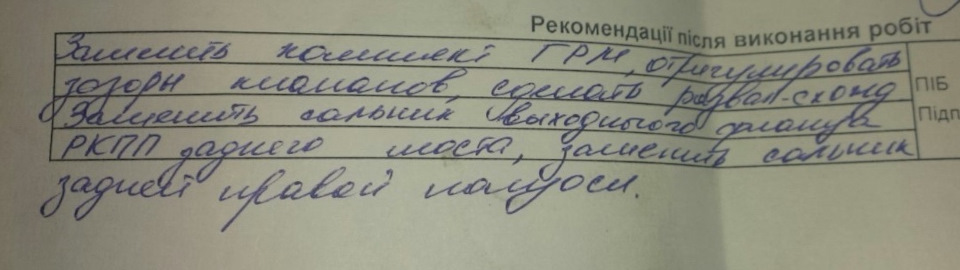 Рекомендації після виконання робіт
Заменить комплект ГРМ, отрегулировать
зазоры клапанов, сделать развал-схожд
ПІБ
Заменить сальник выходного фланца
Підп
РКПП заднего моста, заменить сальник
задней правой полуоси.